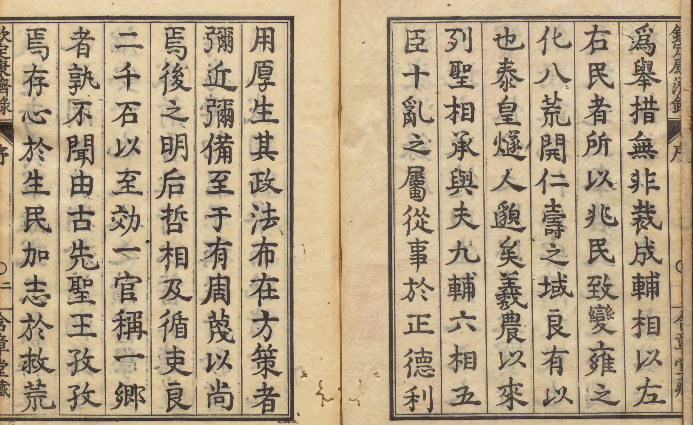 爲舉措無非裁成輔相以左
右民者所以兆民致變雍之
化八荒開仁壽之域良有以
也泰皇燧人邈矣羲農以來
列聖相承與夫九輔六相五
臣十亂之屬從事於正德利
用厚生其政法布在方策者
彌近彌備至于有周蔑以尚
焉後之明后哲相及循吏良
二千石以至効一官稱一鄉
者孰不聞由古先聖王孜孜
焉存心於生民加志於救荒
欽定康濟錄
序
○二
含章堂藏